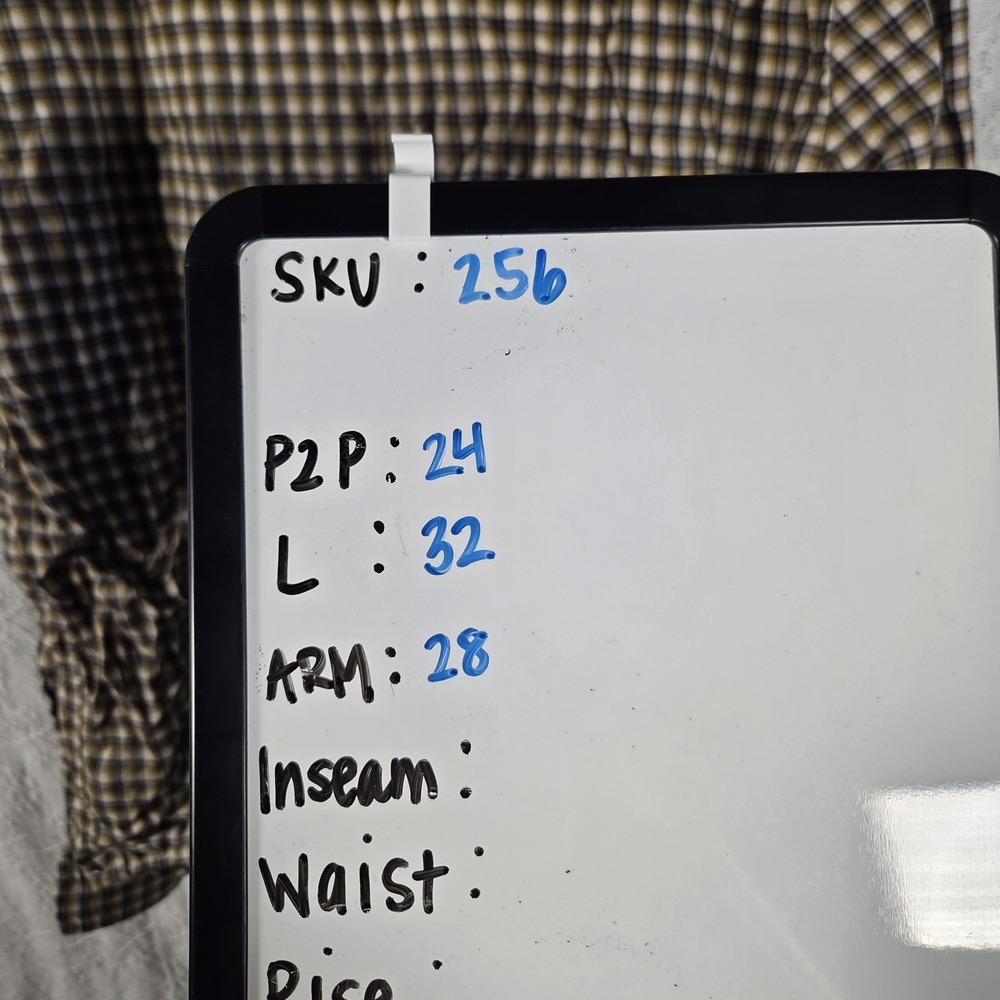 SKU : 256
P2P : 24
L : 32
ARM : 28
Inseam :
Waist :
Rise :